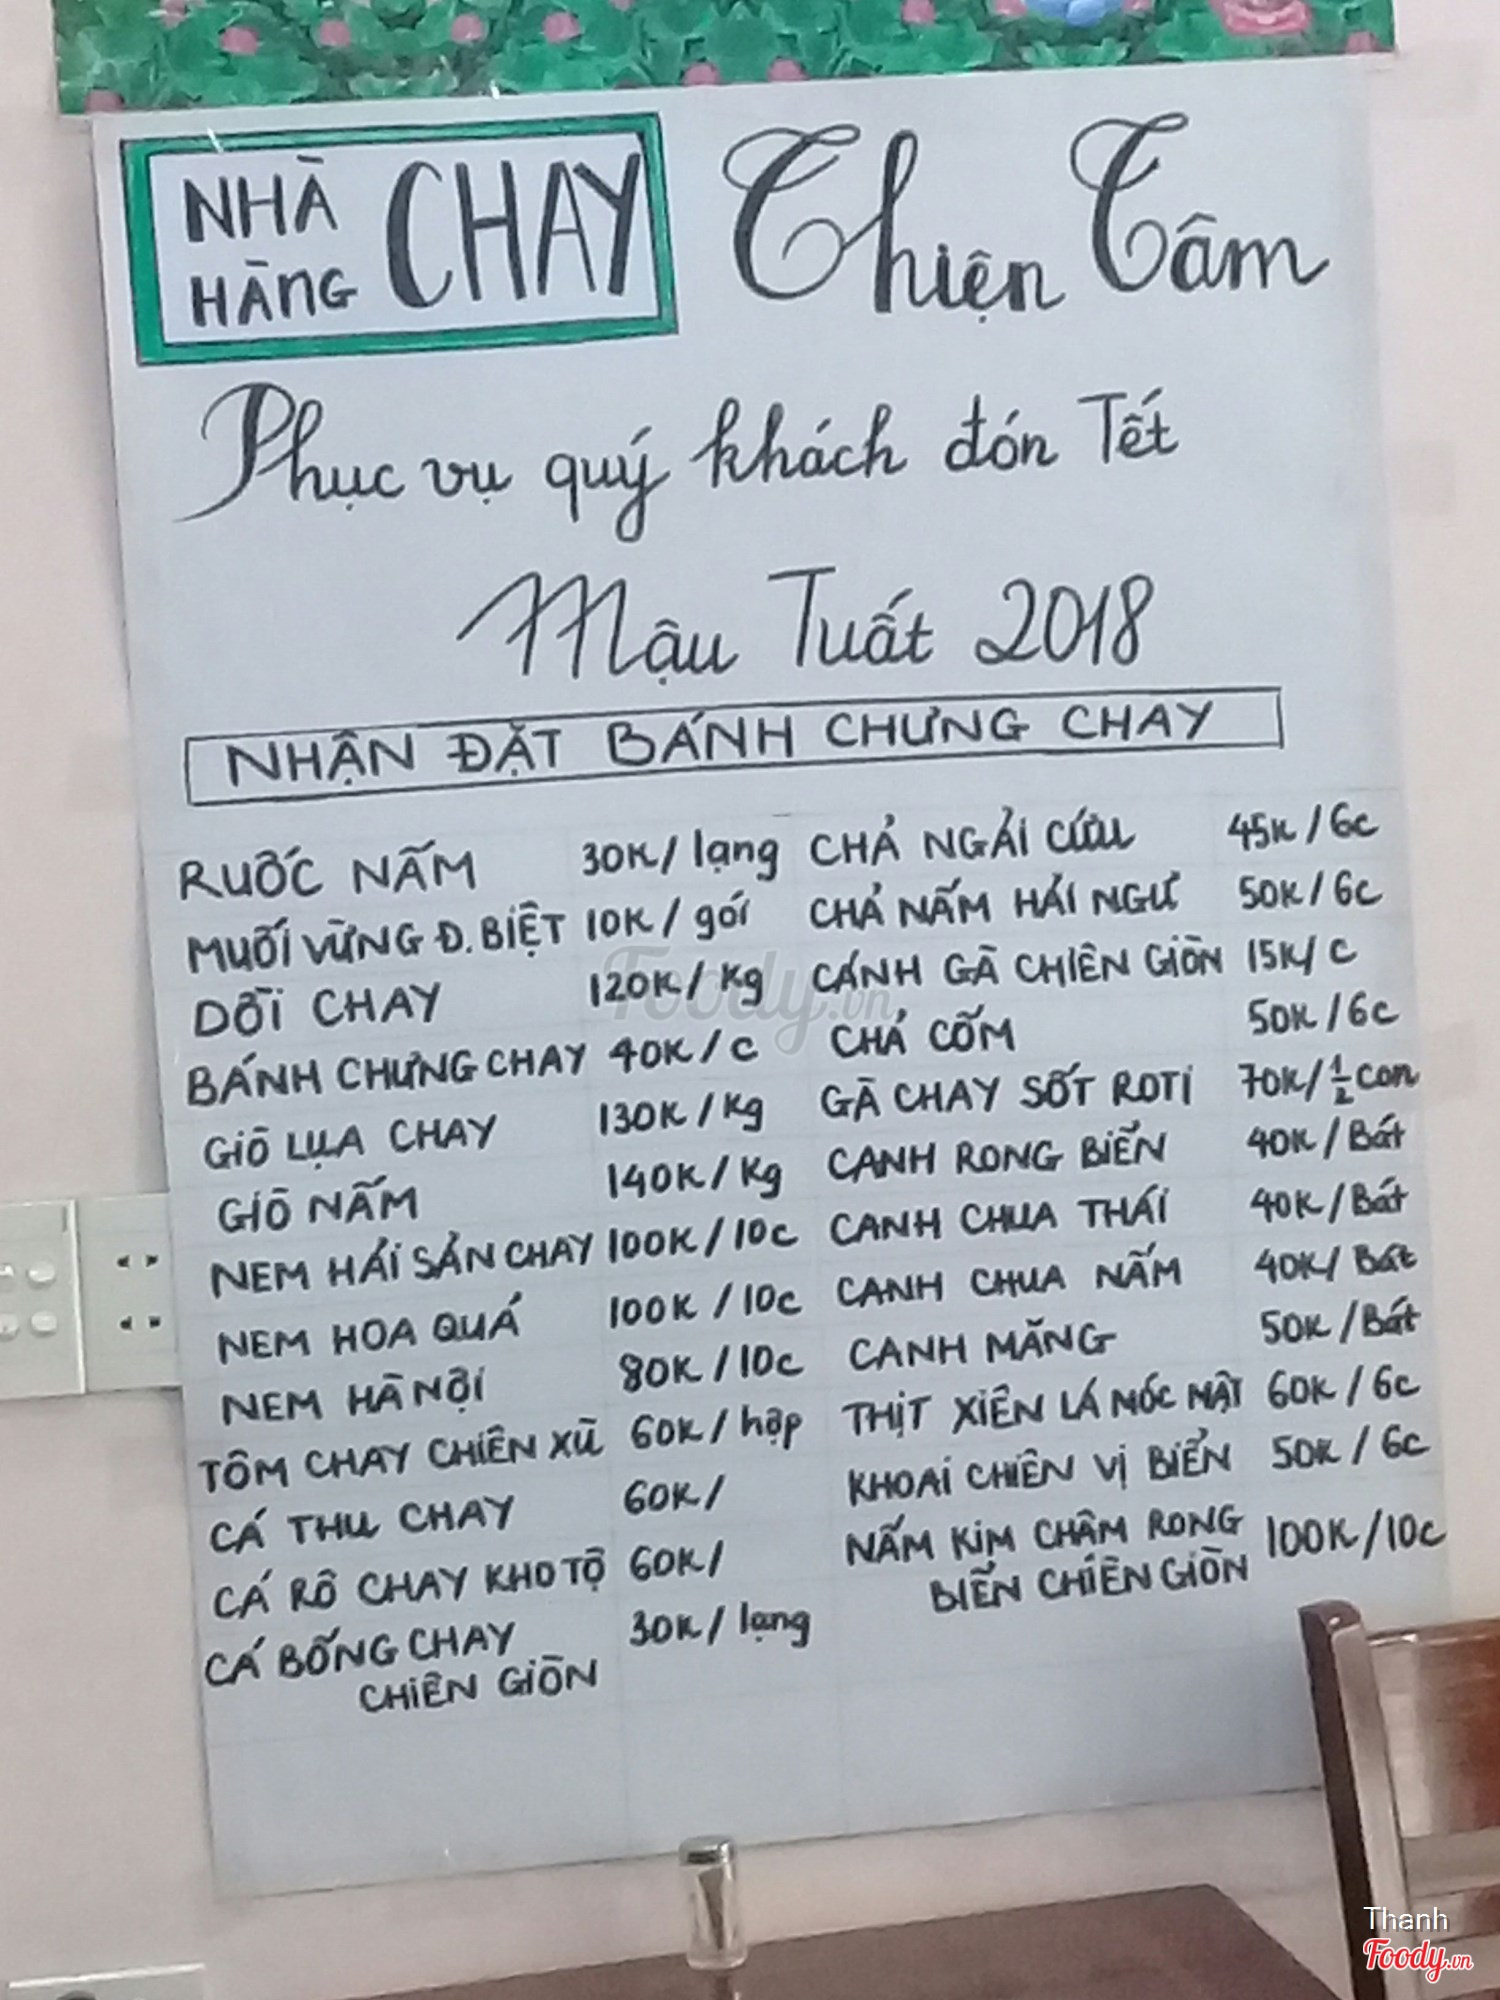 NHÀ HÀNG CHAY Thiện Tâm
Phục vụ quý khách đón Tết
Mậu Tuất 2018
NHẬN ĐẶT BÁNH CHƯNG CHAY
RUỐC NẤM 30K/lạng
MUỐI VỪNG Đ.BIỆT 10K/gói
DỒI CHAY 120K/Kg
BÁNH CHƯNG CHAY 40K/C
GIÒ LỤA CHAY 130K/Kg
GIÒ NẤM 140K/Kg
NEM HẢI SẢN CHAY 100K/10c
NEM HOA QUẢ 100K/10c
NEM HÀ NỘI 80K/10c
TÔM CHAY CHIÊN XÙ 60K/hộp
CÁ THU CHAY 60K/
CÁ RÔ CHAY KHO TỘ 60K/
CÁ BỐNG CHAY 30K/lạng
CHIÊN GIÒN
CHẢ NGẢI CỨU 45K/6c
CHẢ NẤM HẢI NGƯ 50K/6c
CÁNH GÀ CHIÊN GIÒN 15K/C
CHẢ CỐM 50K/6c
GÀ CHAY SỐT ROTI 70K/½ con
CANH RONG BIỂN 40K/Bát
CANH CHUA THÁI 40K/Bát
CANH CHUA NẤM 40K/Bát
CANH MĂNG 50K/Bát
THỊT XIÊN LÁ MÓC MẬT 60K/6c
KHOAI CHIÊN VỊ BIỂN 50K/6c
NẤM KIM CHÂM RONG 100K/10c
BIỂN CHIÊN GIÒN
Foody.vn
Thanh
Foody.vn